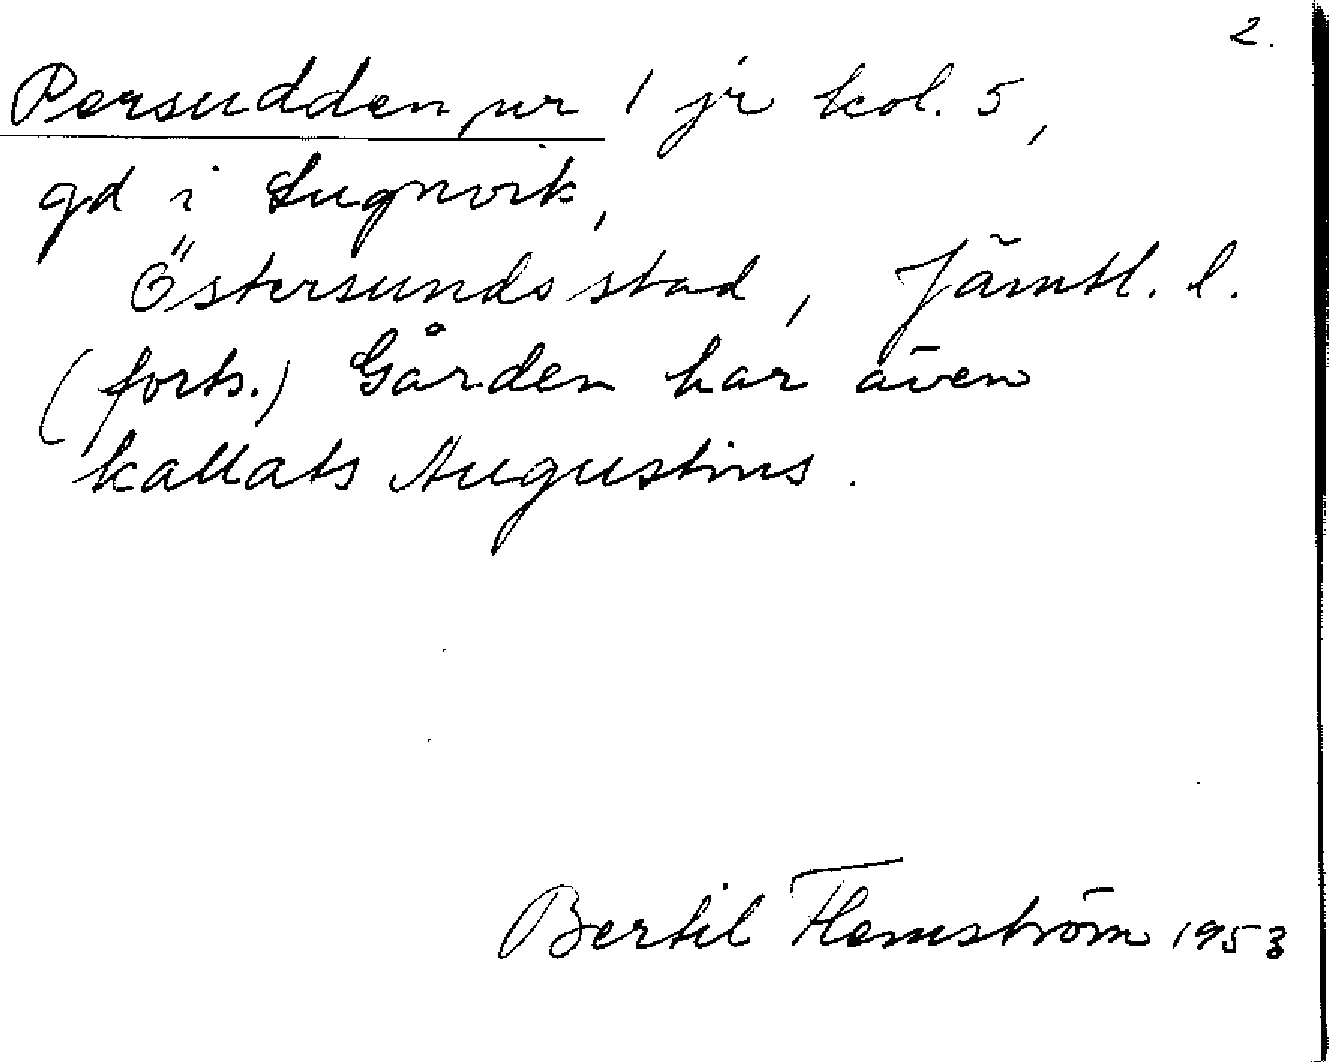 2.
Persudden, nr 1 jr kol. 5,
gd i Lugnvik,
Östersunds stad, Jämtl. l.
(forts.) Gården har även
kallats Augustins.
Bertil Flemström 1953